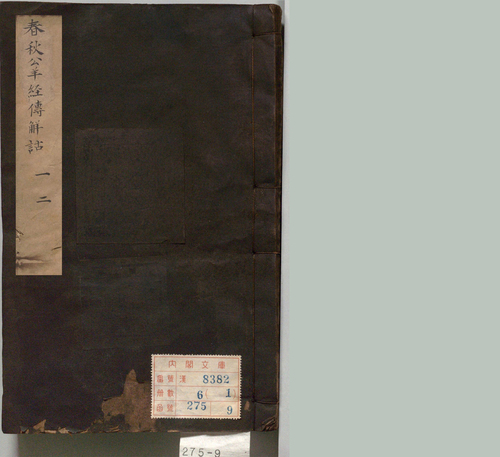 春秋公羊経傳解詁 一 二
内閣文庫
番號 漢 8382
冊數 6 1
函號 275 9
275-9